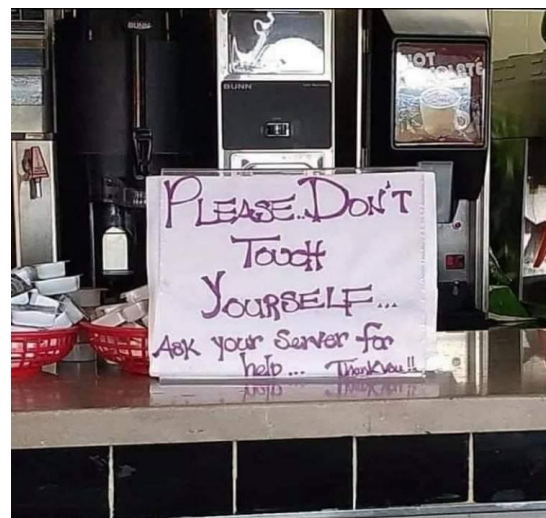 BUNN
BUNN
HOT
CHOCOLATE
PLEASE..DON'T
TOUCH
YOURSELF...
ASK your Server for
help... ThankYou!!